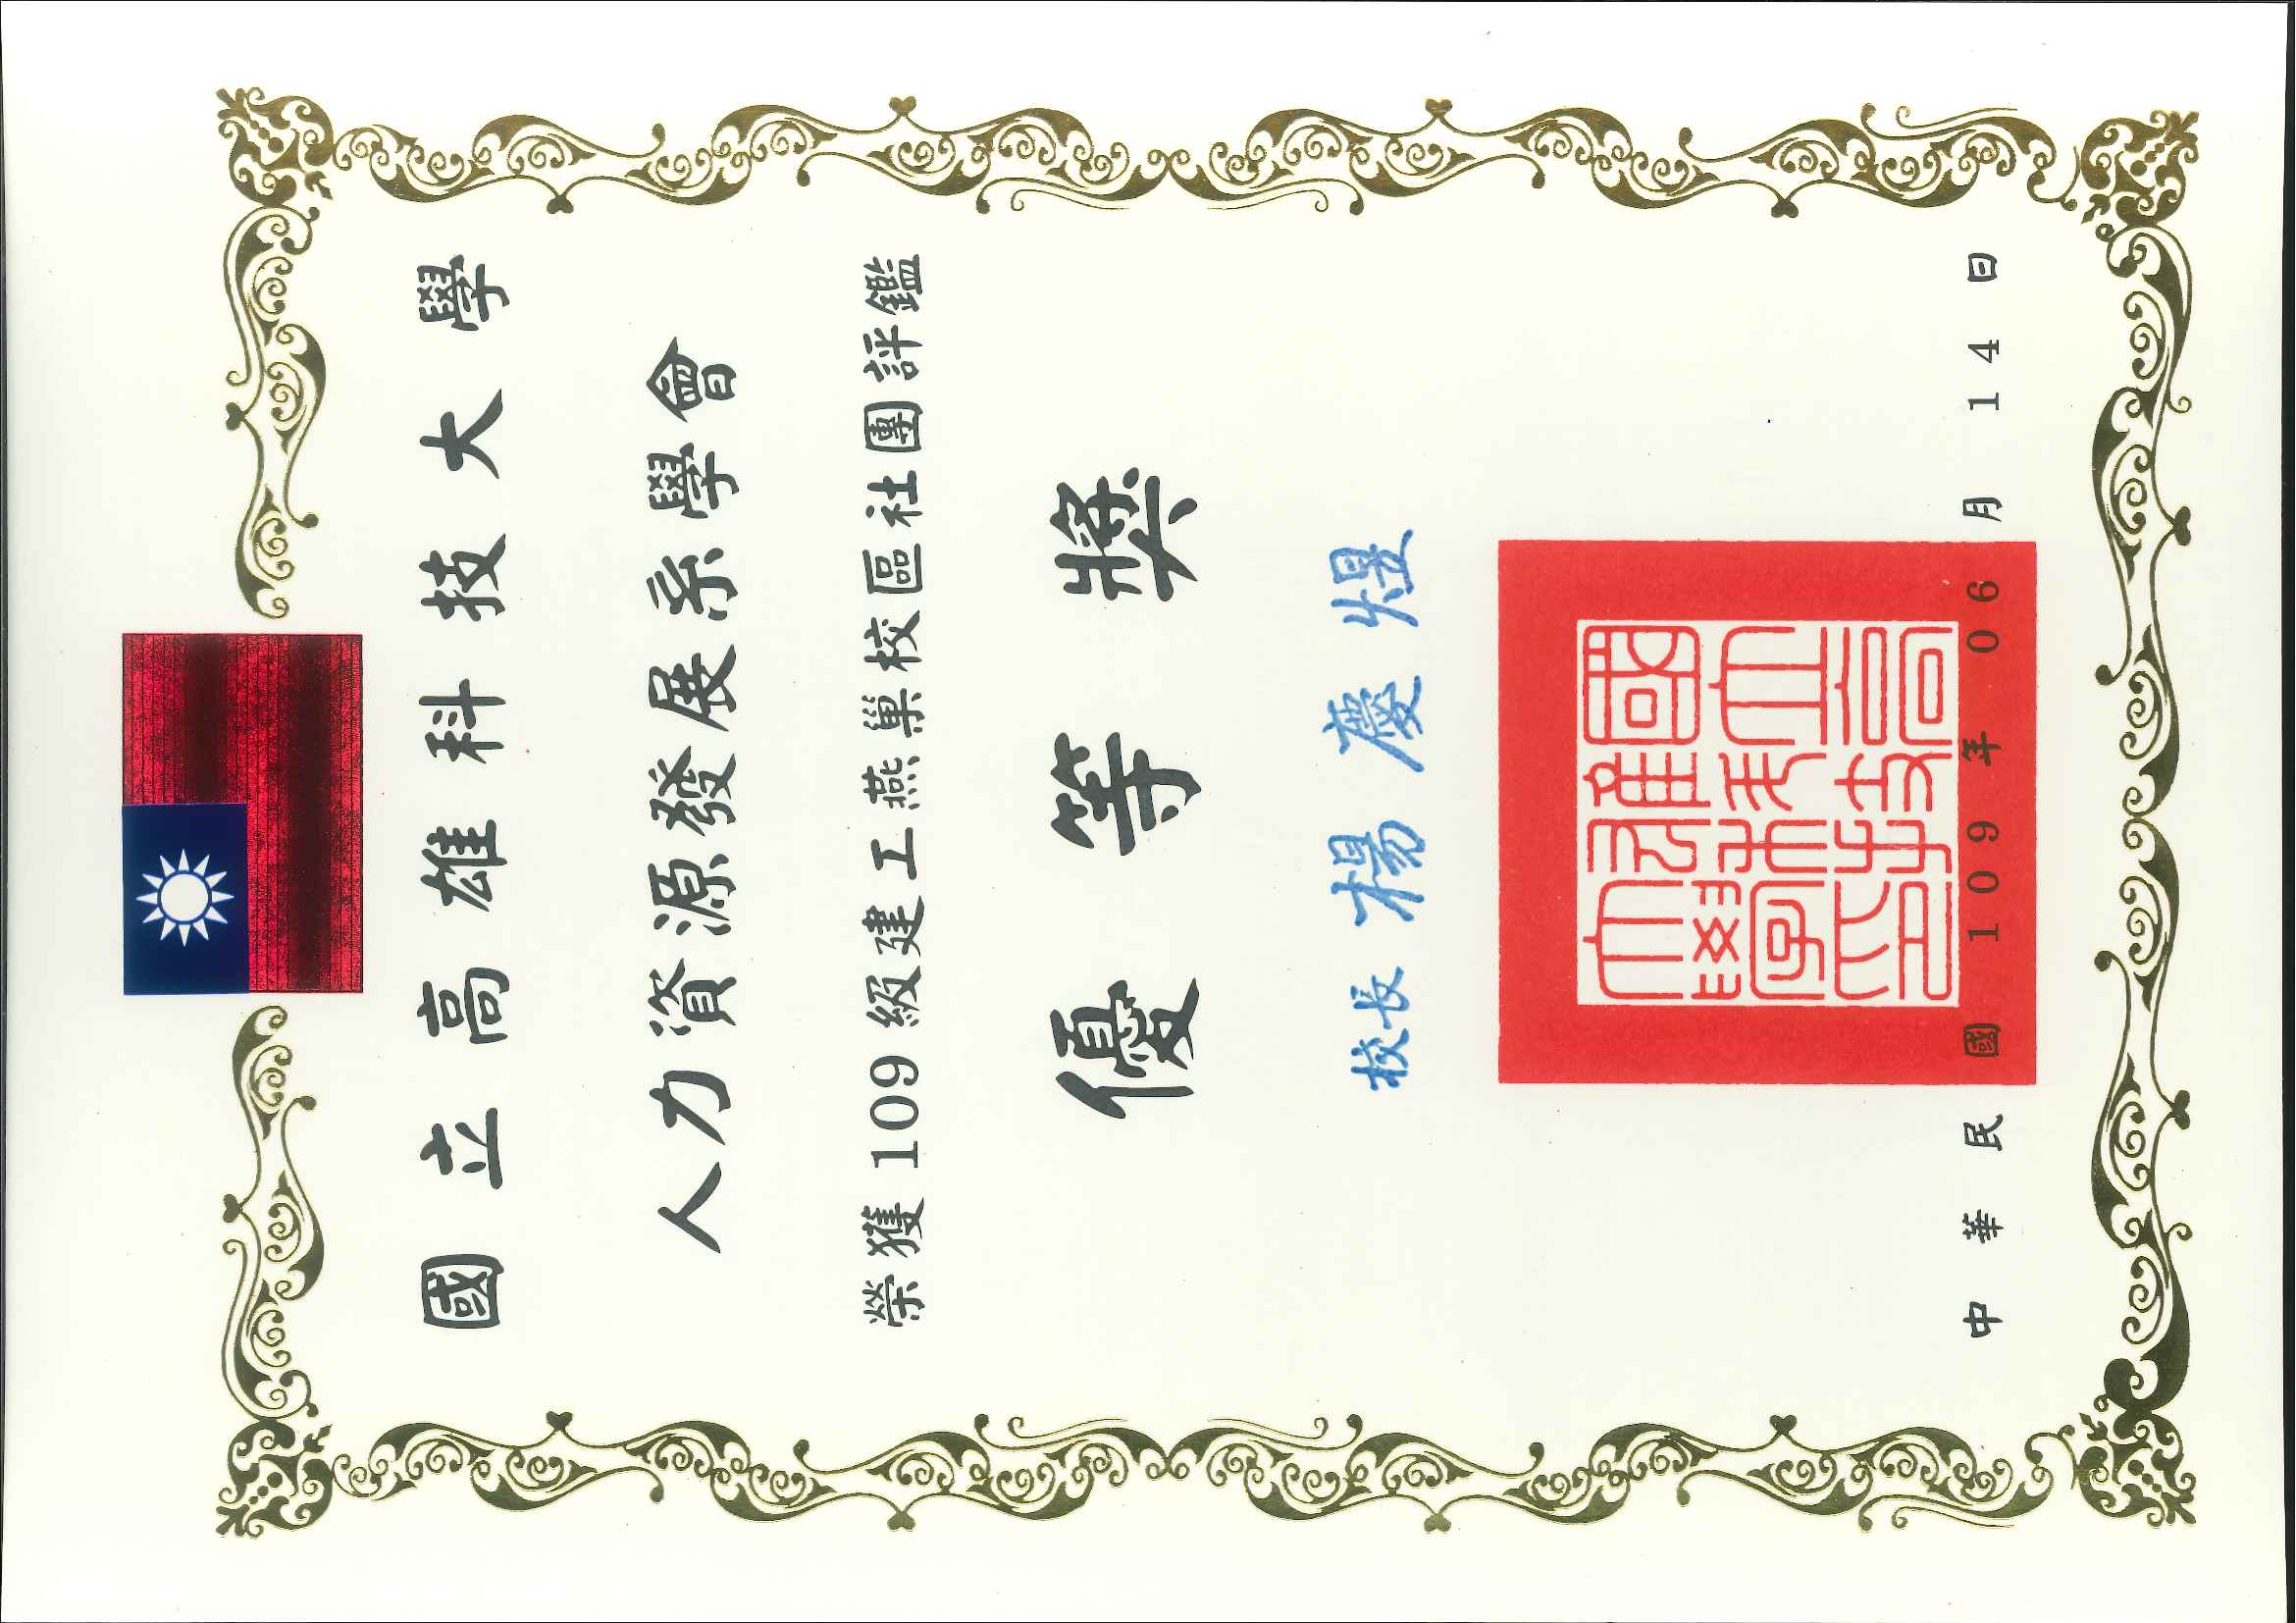 國立高雄科技大學
人力資源發展系學會
榮獲109級建工燕巢校區社團評鑑
優等獎
校長 楊慶煜
中華民國109年06月14日